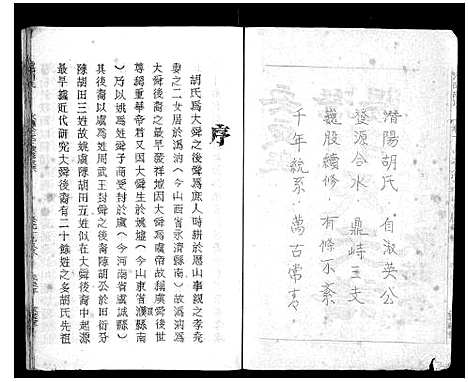 潛陽胡氏 自淑英公
婺源合水 鼎峙三支
魏股續修 有條不紊
千年統系 萬古常青
序
胡氏爲大舜之後舜爲庶人時耕於歷山事親之孝堯
妻之二女居於溈汭(今山西省永濟縣南)故溈汭爲
大舜後世之最早發祥墟因大舜爲虞帝故稱虞舜後世
尊爲重華帝君又因大舜生於姚墟(今山東省濮縣南
)乃以姚爲姓舜子商受封於虞(今河南省虞城縣)
其後裔以虞爲姓周武王封舜之後裔陳胡公於田衍分
陳胡田三姓故姚虞陳胡田五姓似在大舜後裔中起源
最早據近代研究大舜後裔有二十餘姓之多胡氏先祖